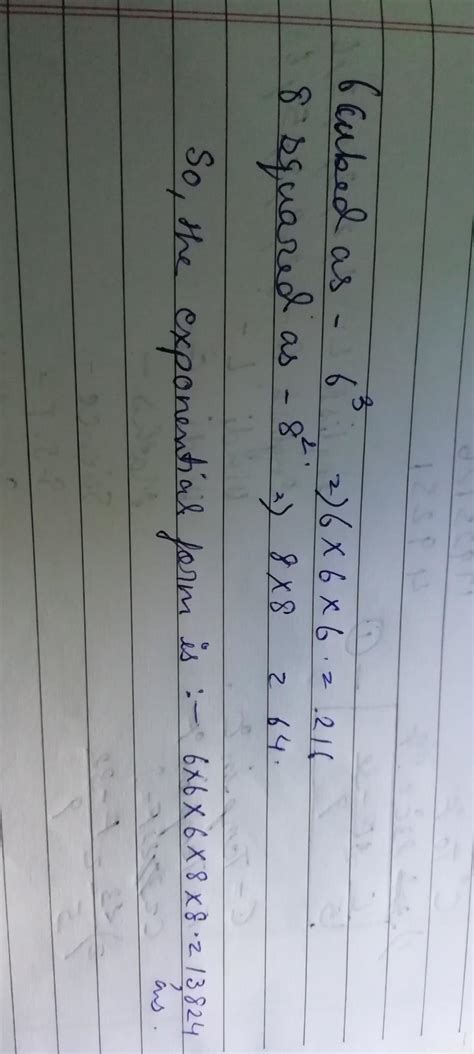 6 cubed as - 6³ =) 6 x 6 x 6 . = 216
8 squared as - 8² =) 8 x 8 = 64.
So, the exponential form is :- 6x6x6x8x8 . = 13824
ans.